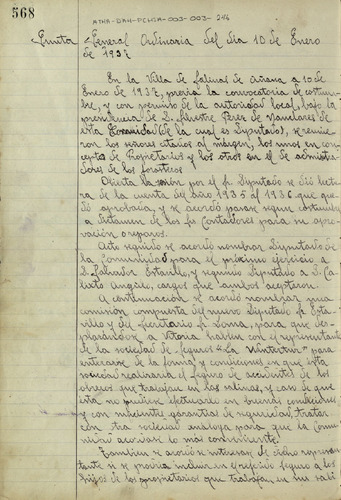 568
ATHA-DAH-FCHSA-003-003-246
Junta General Ordinaria del dia 10 de Enero
de 1937
En la Villa de Salinas de Añana a 10 de
Enero de 1937, previa la convocatoria de costum-
bre, y con permiso de la autoridad local, bajo la
presidencia de D. Silvestre Perez de Nanclares de
esta Comunidad (de la cual es Diputado), se reunie-
ron los señores citados al margen, los unos en con-
cepto de Propietarios y los otros en el de adminis-
tradores de los forasteros
Abierta la sesion por el Sr. Diputado se dió lectu-
ra de la cuenta del año 1935 al 1936 que que-
dó aprobada, y se acordó pasase segun costumbre
a dictamen de los Srs Contadores para su apro-
vación o reparos.
Acto seguido se acordó nombrar Diputado de
la Comunidad para el próximo ejercicio a
D. Salvador Estavillo, y segundo Diputado a D. Ca-
lixto Angulo, cargos que ambos aceptaron.
A continuación se acordó nombrar una
comisión compuesta del nuevo Diputado Sr. Esta-
villo y del Secretario Sr. Loma, para que des-
plazándose a Vitoria hablen con el representante
de la sociedad de seguros "La Winterthur" para
enterarse de la forma y condiciones en que esta
sociedad realizaria el seguro de accidentes de los
obreros que trabajan en las salinas, y caso de que
esta no pudiese efectuarlo en buenas condiciones
y con suficientes garantias de seguridad, tratar
con otra sociedad analoga para que la Comu-
nidad acordase lo mas conveniente.
Tambien se acordó se interesase de dicho represen-
tante si se podria incluir en el repetido seguro a los
hijos de los propietarios que trabajan en sus sali